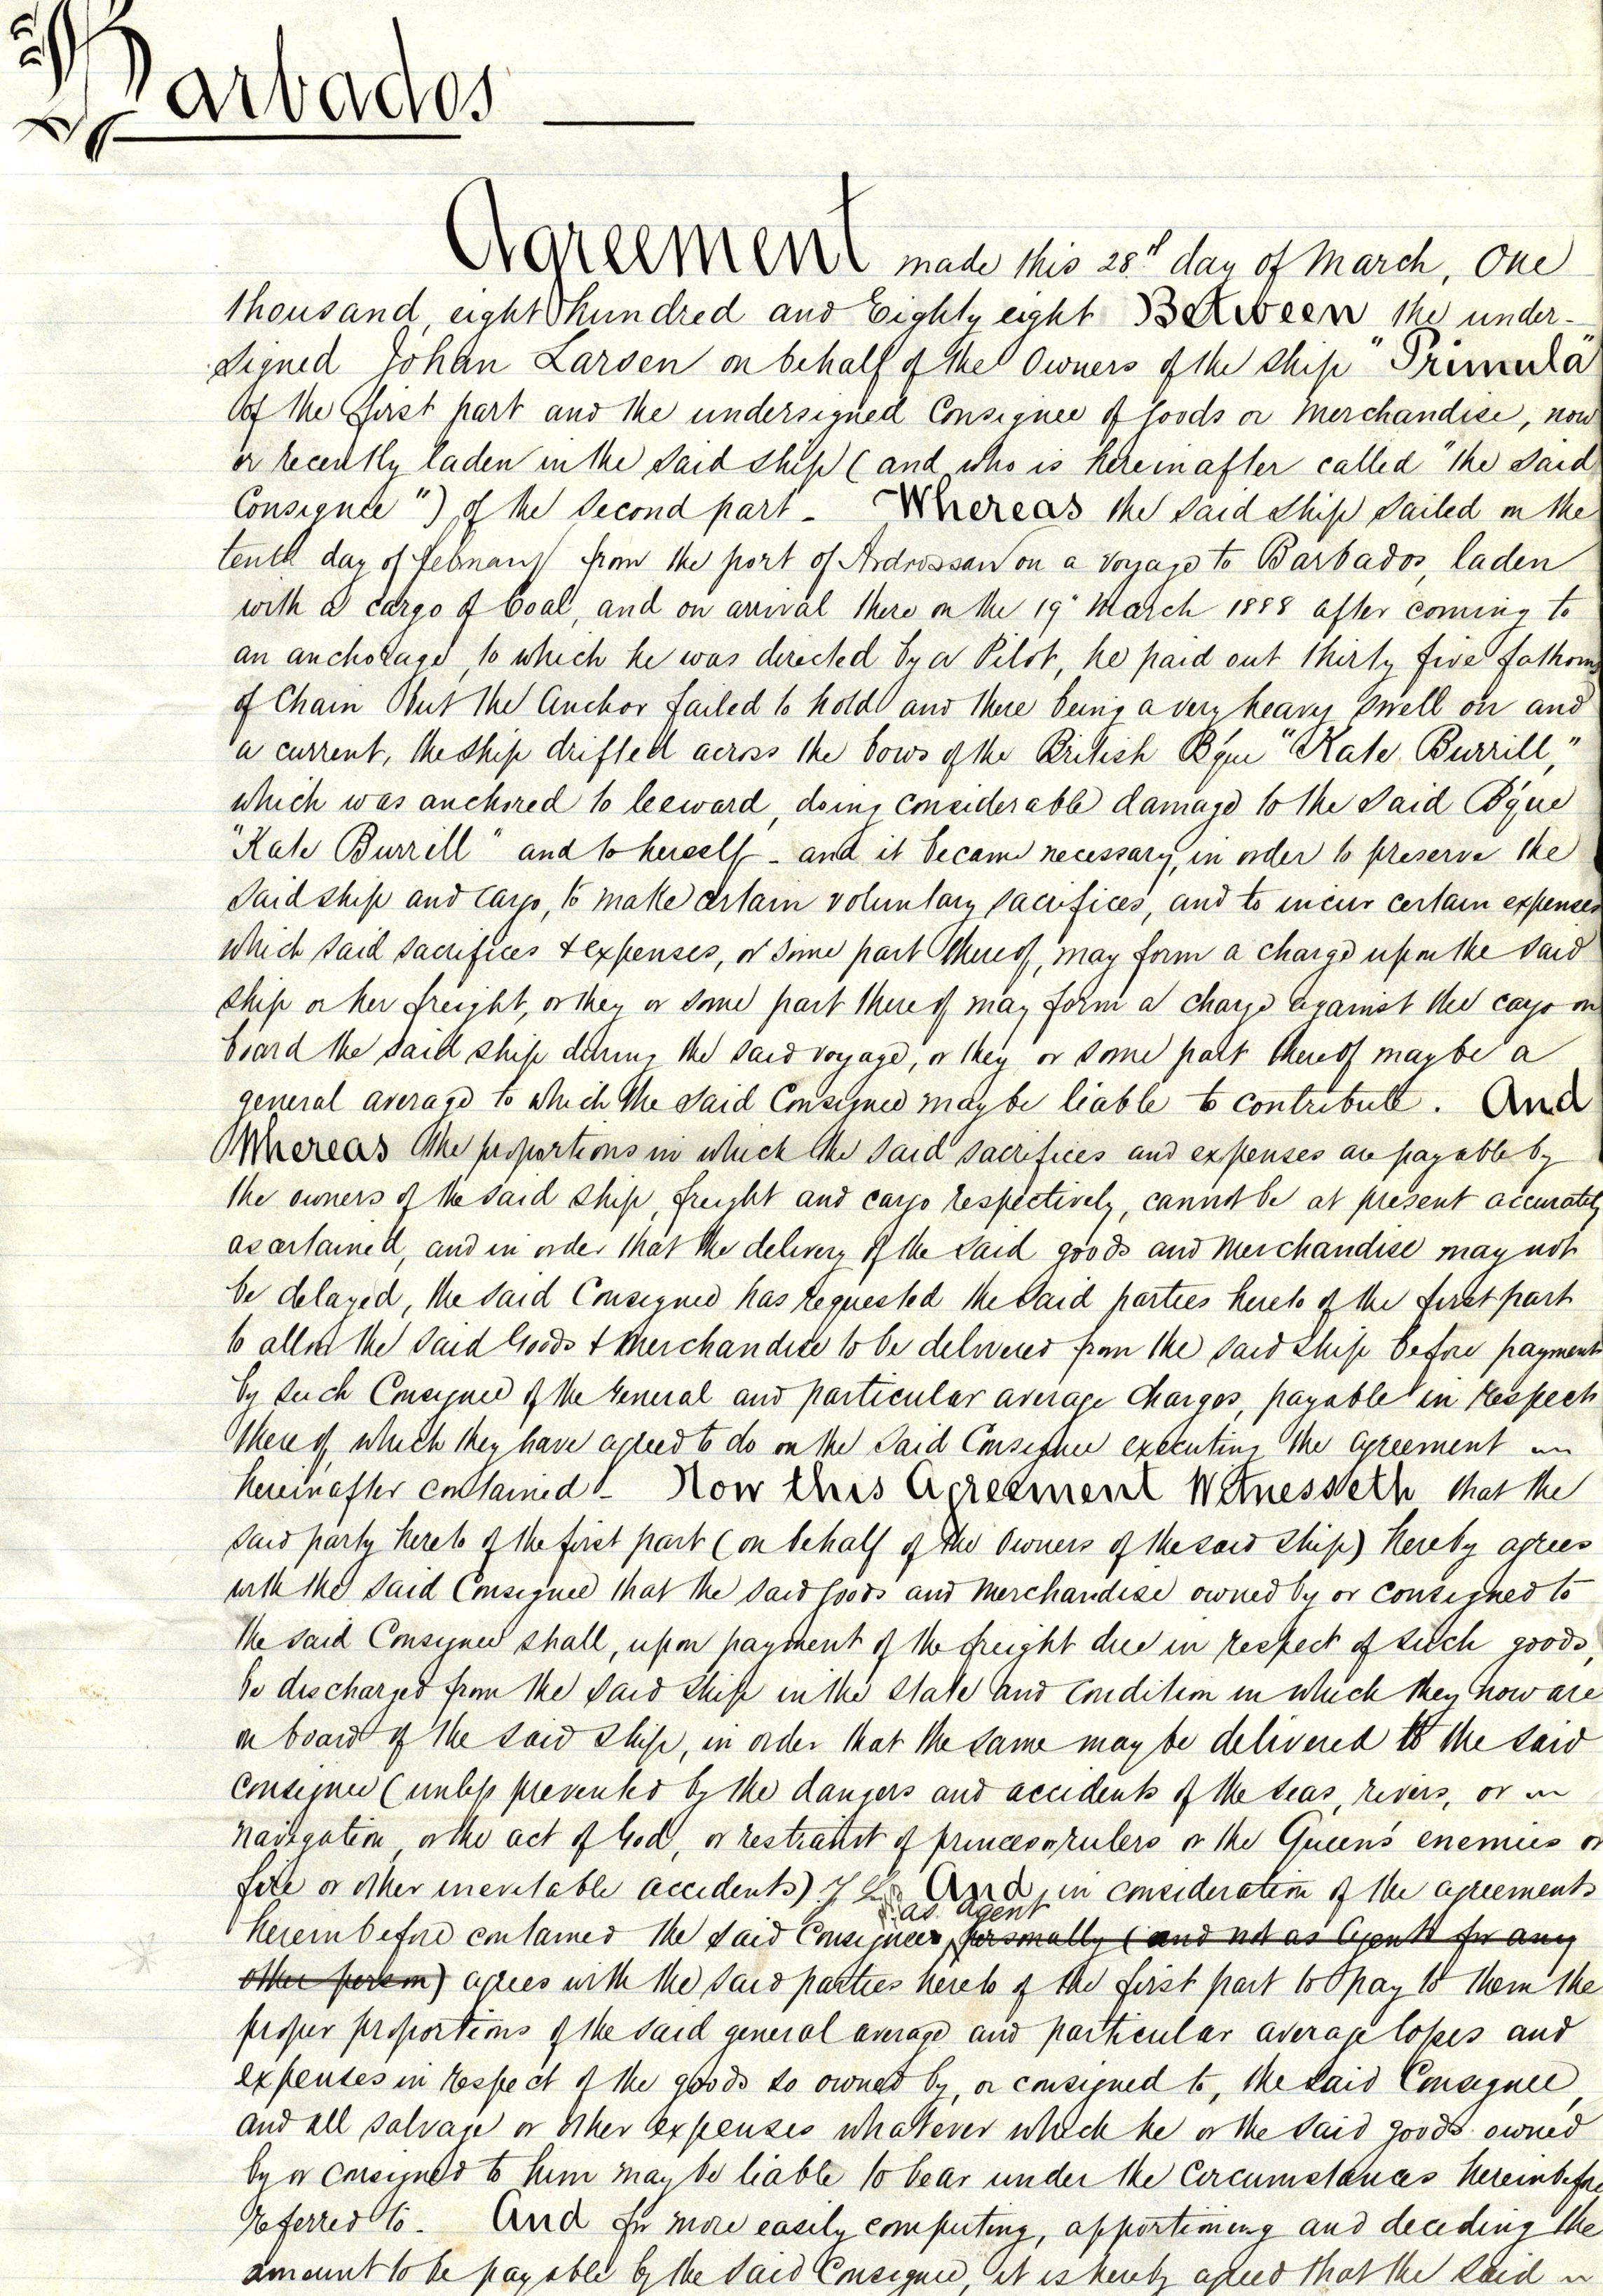 Barbados
Agreement made this 28th day of March, One
thousand, eight hundred and Eighty eight Between the under-
signed Johan Larsen on behalf of the Owners of the ship "Primula"
of the first part and the undersigned Consignee of Goods or Merchandise, now
or recently laden in the said ship (and who is hereinafter called "the said
Consignee") of the second part - Whereas the said ship sailed on the
tenth day of February from the port of Ardrossan on a voyage to Barbados, laden
with a cargo of Coal, and on arrival there on the 19" March 1888 after coming to
an anchorage, to which he was directed by a Pilot, he paid out thirty five fathoms
of Chain but the Anchor failed to hold and there being a very heavy swell on and
a current, the ship drifted across the bows of the British Bque "Kate Burrill,"
which was anchored to leeward, doing considerable damage to the said Bque
"Kate Burrill" and to herself - and it became necessary, in order to preserve the
said ship and cargo, to make certain voluntary sacrifices, and to incur certain expenses
which said sacrifices & expenses, or some part thereof, may form a charge upon the said
ship or her freight, or they or some part thereof may form a charge against the cargo on
board the said ship during the said voyage, or they or some part thereof may be a
general average to which the said Consignee may be liable to contribute. And
Whereas the proportions in which the said sacrifices and expenses are payable by
the owners of the said ship, freight and cargo respectively, cannot be at present accurately
ascertained, and in order that the delivery of the said goods and merchandise may not
be delayed, the said Consignee has requested the said parties hereto of the first part
to allow the said Goods & Merchandise to be delivered from the said ship before payment
by such Consignee of the General and particular average charges, payable in respect
thereof, which they have agreed to do on the said Consignee executing the agreement
hereinafter contained - Now this Agreement Witnesseth that the
said party hereto of the first part (on behalf of the Owners of the said ship) hereby agrees
with the said Consignee that the said goods and merchandise owned by or consigned to
the said Consignee shall, upon payment of the freight due in respect of such goods,
be discharged from the said ship in the state and condition in which they now are
on board of the said ship, in order that the same may be delivered to the said
consignee (unless prevented by the dangers and accidents of the seas, rivers, or
navigation, or the act of God, or restraint of princes or rulers or the Queen's enemies or
fire or other inevitable accidents) And, in consideration of the agreements
as agent
hereinbefore contained the said Consignees, personally (and not as Agents for any
other person) agrees with the said parties hereto of the first part to pay to them the
proper proportions of the said general average and particular average losses and
expenses in respect of the goods so owned by, or consigned to, the said Consignee,
and all salvage or other expenses whatever which he or the said goods owned
by or consigned to him may be liable to bear under the circumstances hereinbefore
referred to - And for more easily computing, apportioning and deciding the
amount to be payable by the said Consignee, it is hereby agreed that the said